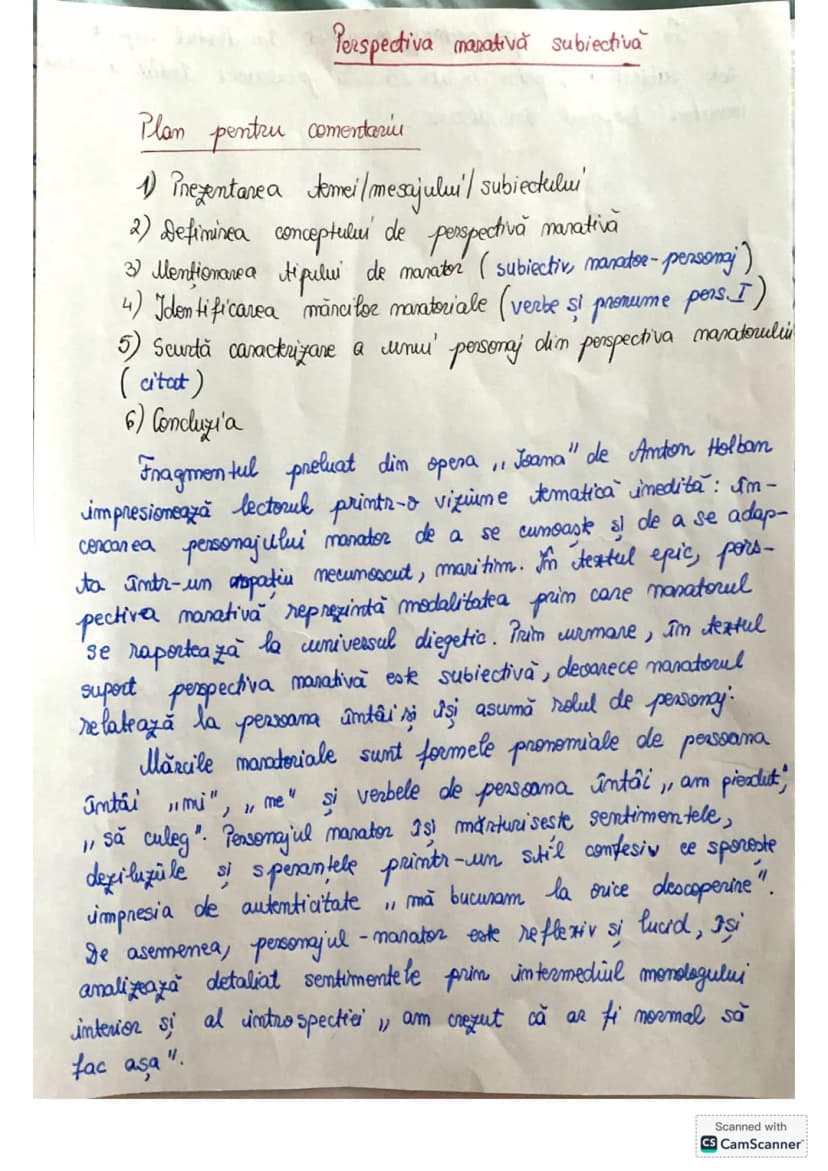 Perspectiva narativă subiectivă
Plan pentru comentariu
1) Prezentarea temei/mesajului/subiectului
2) Definirea conceptului de perspectivă narativă
3) Menționarea tipului de narator (subiectiv, narator-personaj)
4) Identificarea mărcilor naratoriale (verbe și pronume pers. I)
5) Scurtă caracterizare a unui personaj din perspectiva naratorului
(citat)
6) Concluzia
Fragmentul preluat din opera „Ioana" de Anton Holban
impresionează lectorul printr-o viziune tematică inedită: în-
cercarea personajului narator de a se cunoaște și de a se adap-
ta într-un spațiu necunoscut, maritim. În textul epic, pers-
pectiva narativă reprezintă modalitatea prin care naratorul
se raportează la universul diegetic. Prin urmare, în textul
suport perspectiva narativă este subiectivă, deoarece naratorul
relatează la persoana întâi și își asumă rolul de personaj.
Mărcile naratoriale sunt formele pronomiale de persoana
întâi „mi", „me" și verbele de persoana întâi „am pierdut",
„să culeg". Personajul narator își mărturisește sentimentele,
deziluziile și speranțele printr-un stil confesiv ce sporește
impresia de autenticitate „mă bucuram la orice descoperire".
De asemenea, personajul-narator este reflexiv și lucid, își
analizează detaliat sentimentele prin intermediul monologului
interior și al introspectiei „am crezut că ar fi normal să
fac așa".
Scanned with
CS CamScanner